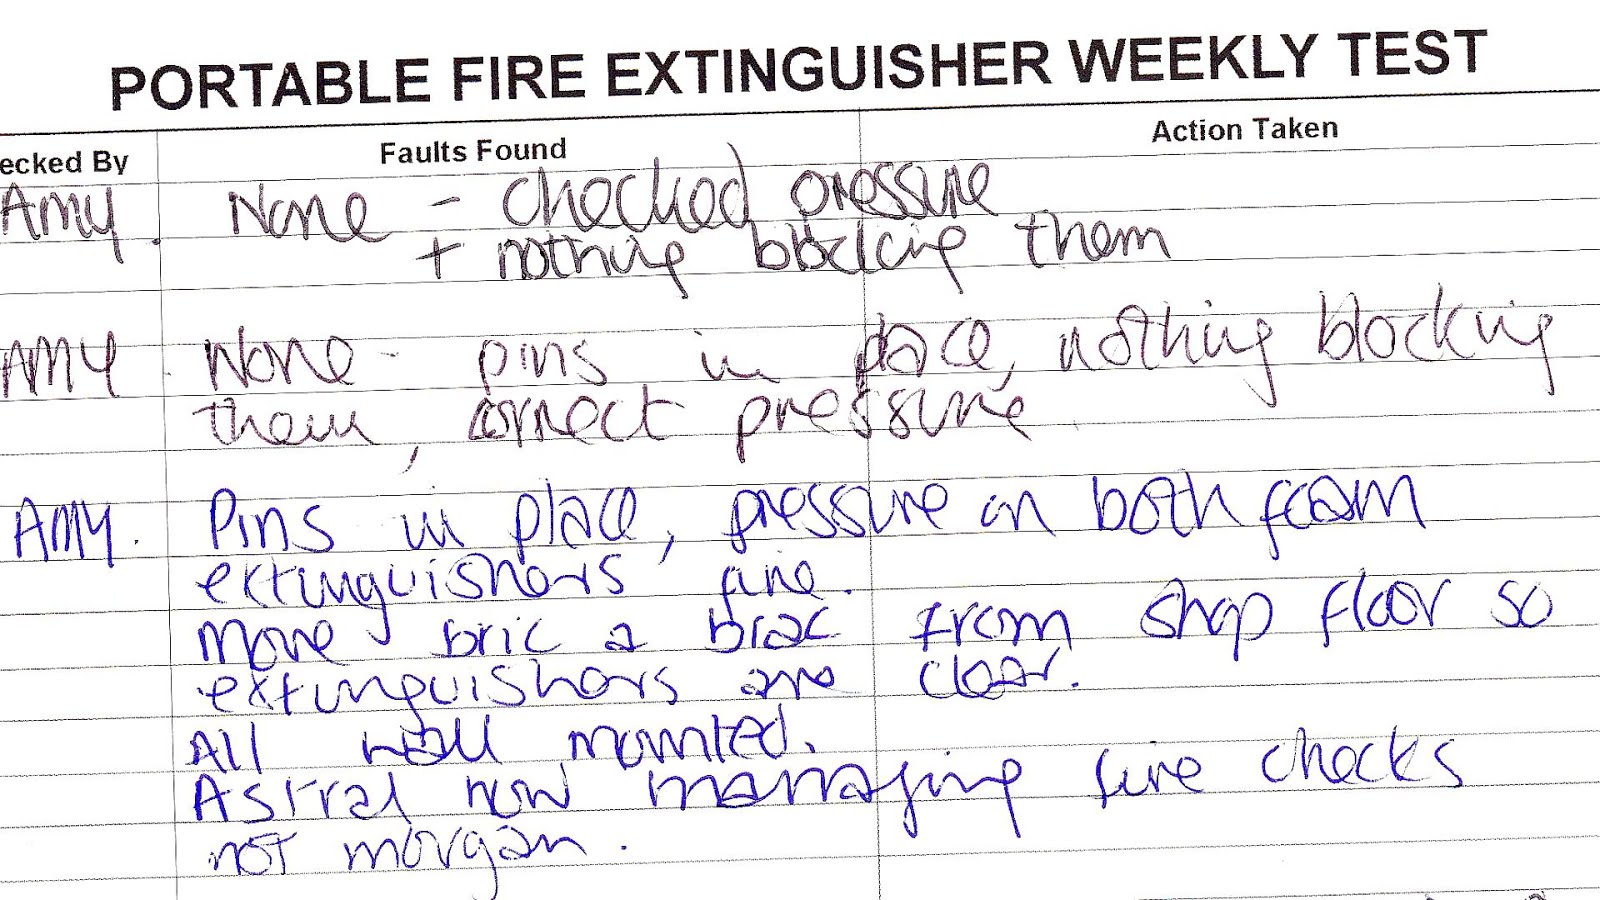 PORTABLE FIRE EXTINGUISHER WEEKLY TEST
ecked By Faults Found Action Taken
Amy. None - checked pressure
+ nothing blocking them
AMY None - pins in place, nothing blocking
them, correct pressure
AMY. Pins in place, pressure on both foam
extinguishers fine.
Move bric a brac from shop floor so
extinguishers are clear.
All wall mounted.
Astral now managing fire checks
not morgan.